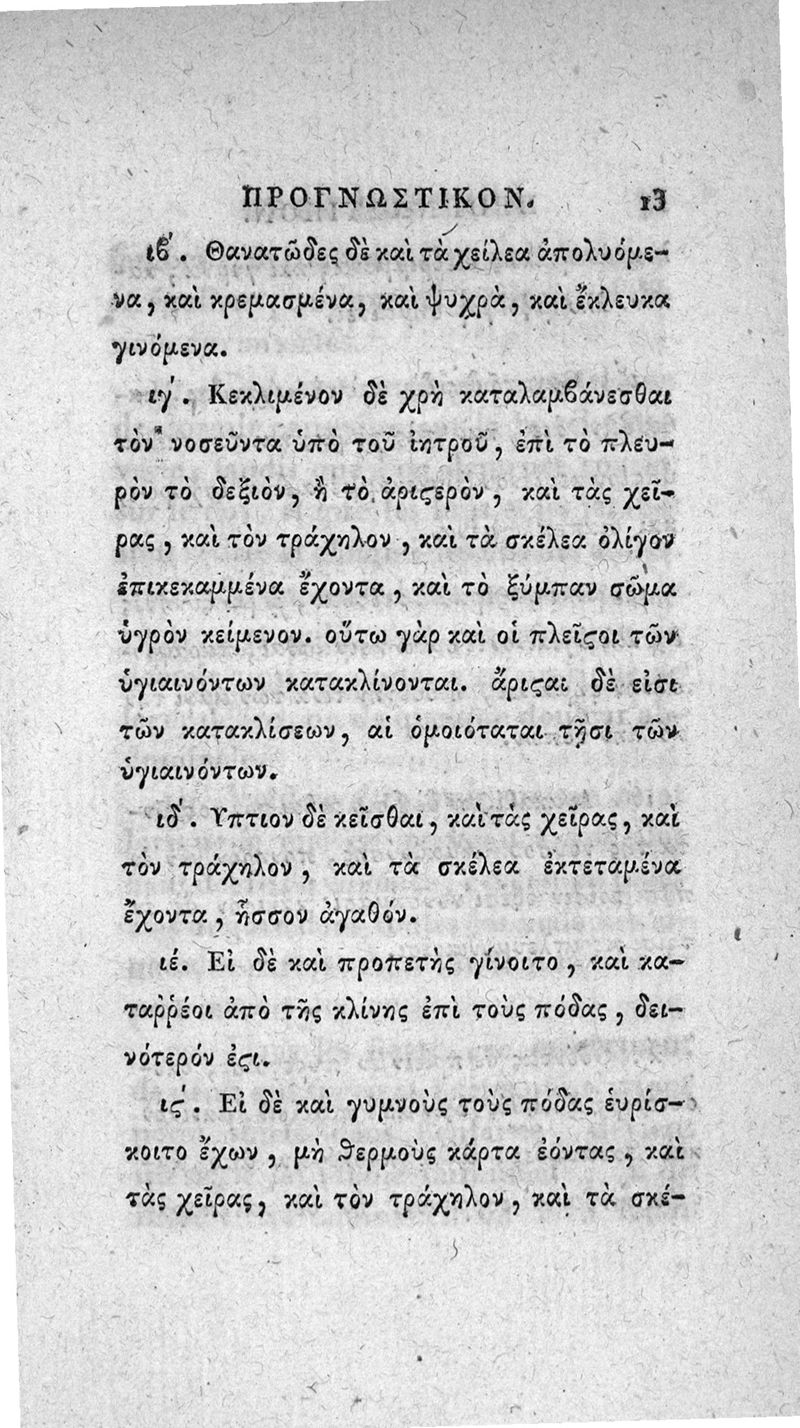 ΠΡΟΓΝΩΣΤΙΚΟΝ. 13
ιϐ′. Θανατῶδες δὲ καὶ τὰ χείλεα ἀπολυόμε-
να, καὶ κρεμασμένα, καὶ ψυχρὰ, καὶ ἔκλευκα
γινόμενα.
ιγ′. Κεκλιμένον δὲ χρὴ καταλαμϐάνεσθαι
τὸν νοσεῦντα ὑπὸ τοῦ ἰητροῦ, ἐπὶ τὸ πλευ-
ρὸν τὸ δεξιὸν, ἢ τὸ ἀριϛερὸν, καὶ τὰς χεῖ-
ρας, καὶ τὸν τράχηλον, καὶ τὰ σκέλεα ὀλίγον
ἐπικεκαμμένα ἔχοντα, καὶ τὸ ξύμπαν σῶμα
ὑγρὸν κείμενον. οὕτω γὰρ καὶ οἱ πλεῖϛοι τῶν
ὑγιαινόντων κατακλίνονται. ἄριϛαι δὲ εἰσι
τῶν κατακλίσεων, αἱ ὁμοιόταται τῇσι τῶν
ὑγιαινόντων.
ιδ′. Υπτιον δὲ κεῖσθαι, καὶ τὰς χεῖρας, καὶ
τὸν τράχηλον, καὶ τὰ σκέλεα ἐκτεταμένα
ἔχοντα, ἧσσον ἀγαθόν.
ιέ. Εἰ δὲ καὶ προπετὴς γίνοιτο, καὶ κα-
ταῤῥέοι ἀπὸ τῆς κλίνης ἐπὶ τοὺς πόδας, δει-
νότερόν ἐϛι.
ιϛ′. Εἰ δὲ καὶ γυμνοὺς τοὺς πόδας ἑυρίσ-
κοιτο ἔχων, μὴ ϑερμοὺς κάρτα ἐόντας, καὶ
τὰς χεῖρας, καὶ τὸν τράχηλον, καὶ τὰ σκέ-